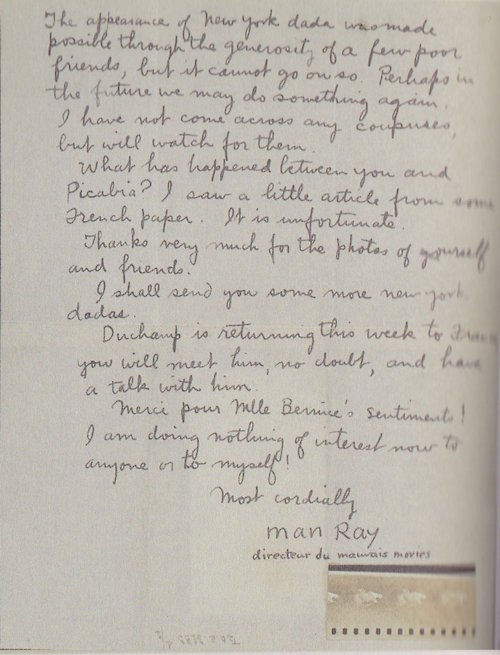 The appearance of New York dada was made
possible through the generosity of a few poor
friends, but it cannot go on so. Perhaps in
the future we may do something again.
I have not come across any
but will watch for them.
What has happened between you and
Picabia? I saw a little article from some
French paper. It is unfortunate.
Thanks very much for the photos of yourself
and friends.
I shall send you some more new york
dadas.
Duchamp is returning this week to
you will meet him, no doubt, and have
a talk with him.
Merci pour Mlle Bernice's sentiments!
I am doing nothing of interest now to
anyone or to myself!
Most cordially
man Ray
directeur du mauvais movies